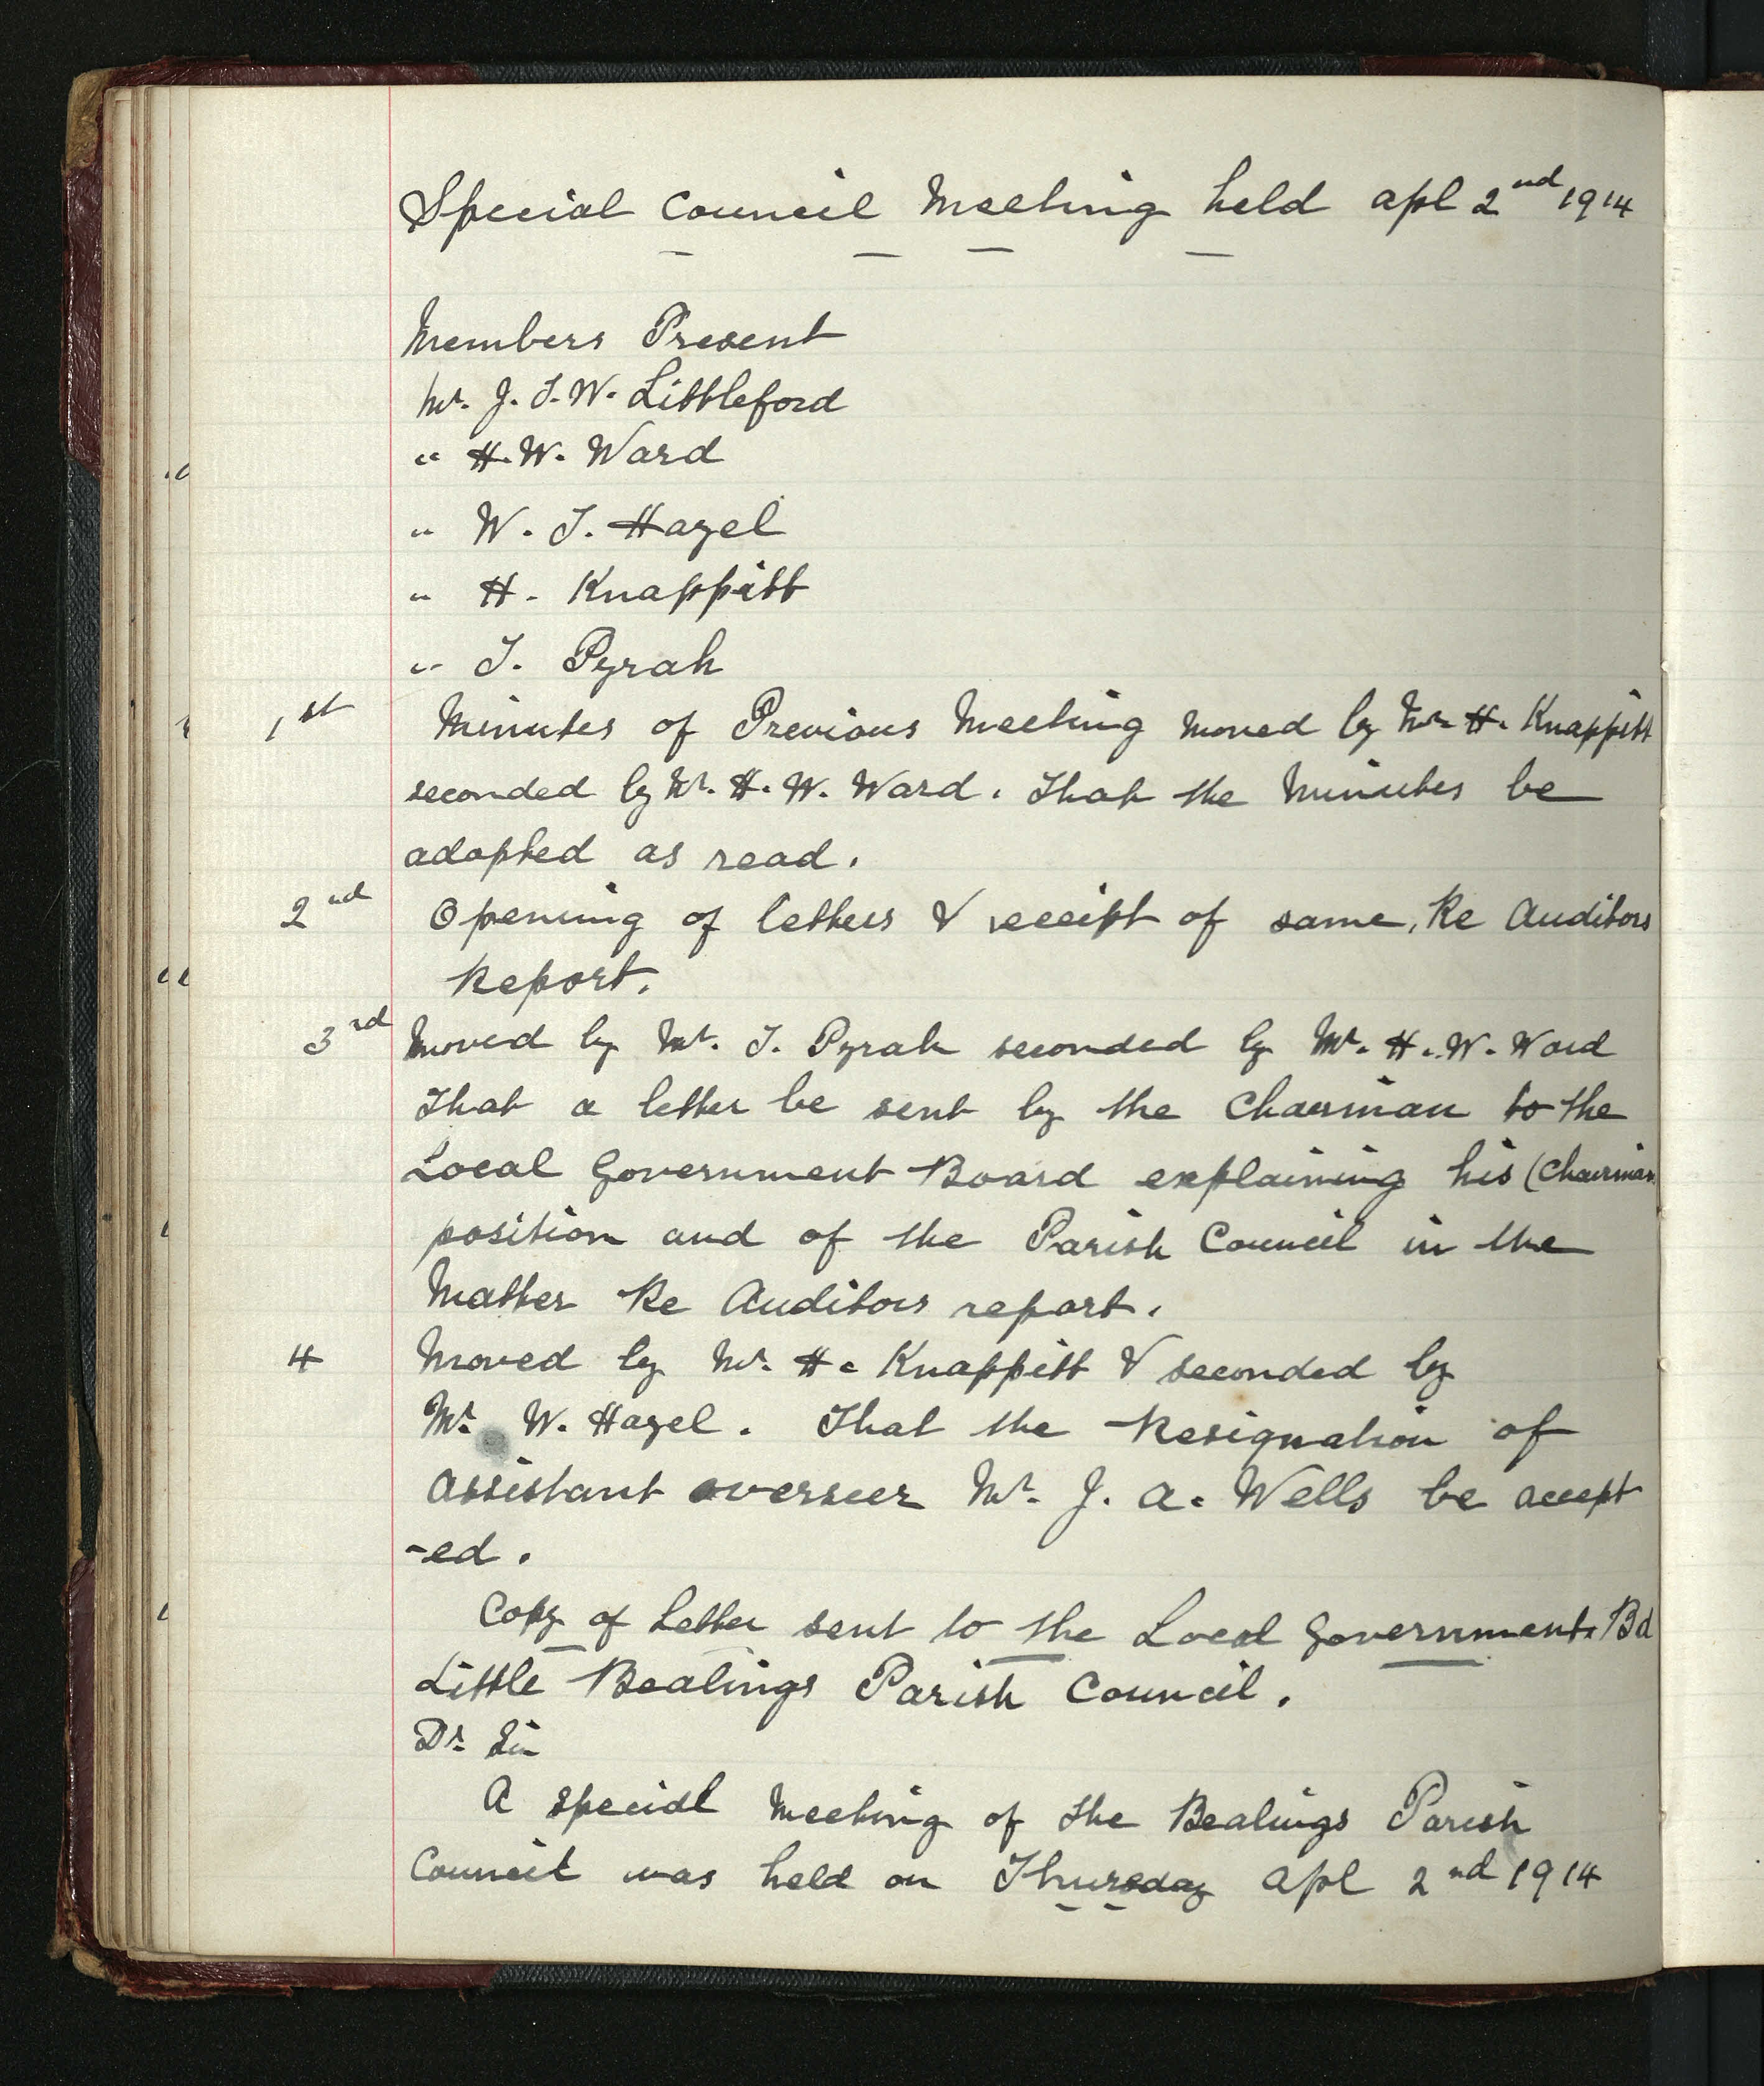 Special Council Meeting held apl 2nd 1914
Members Present
Mr. J. T. W. Littleford
" H. W. Ward
" W. T. Hazel
" H. Knappitt
" T. Pyrah
1st Minutes of Previous Meeting moved by Mr. H. Knappitt
seconded by Mr. H. W. Ward. That the Minutes be
adopted as read.
2nd Opening of letters & receipt of same, Re Auditors
Report.
3rd Moved by Mr. T. Pyrah seconded by Mr. H. W. Ward
That a letter be sent by the Chairman to the
Local Government Board explaining his (Chairman
position and of the Parish Council in the
Matter Re Auditors report.
4 Moved by Mr. H. Knappitt & seconded by
Mr. W. Hazel. That the Resignation of
Assistant overseer Mr. J. A. Wells be accept
-ed.
Copy of Letter sent to the Local Government. Bd
Little Bealings Parish Council.
Dr. Sir
A special Meeting of the Bealings Parish
Council was held on Thursday Apl 2nd 1914